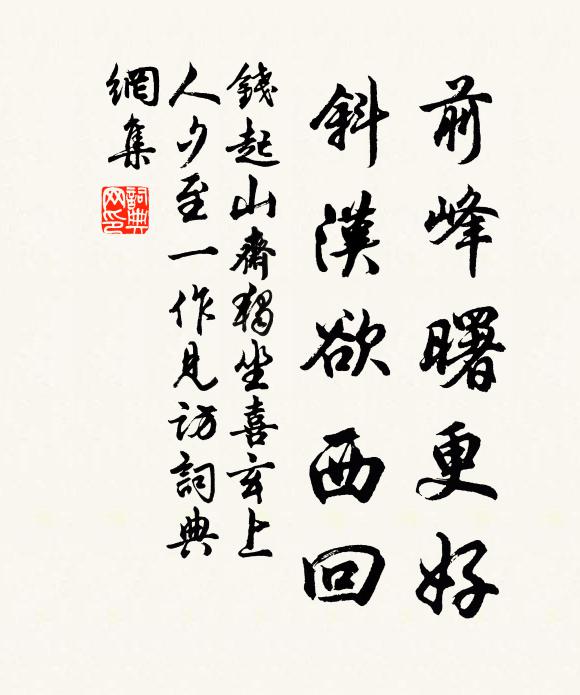 前峰曙更好
斜漢欲西回
錢起山齋獨坐喜玄上
人夕至一作見訪詞典
網集
詞典網印